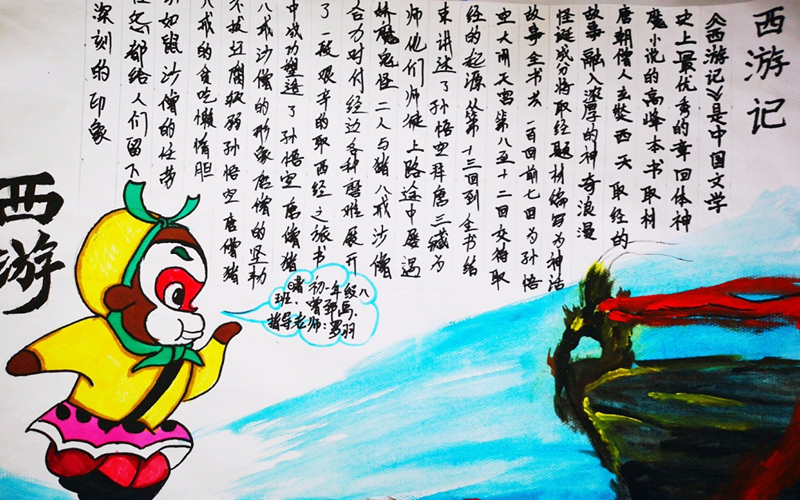 西游记
《西游记》是中国文学
史上最优秀的章回体神
魔小说的高峰本书取材
唐朝僧人玄奘西天取经的
故事融入浓厚的神奇浪漫
怪诞成分将取经题材编写为神话
故事全书共一百回前七回为孙悟
空大闹天宫第八至十二回交待取
经的起源从第十三回到全书结
束讲述了孙悟空拜唐三藏为
师他们师徒上路途中屡遇
妖魔鬼怪二人与猪八戒沙僧
合力对付经边各种磨难展开
了一段艰辛的取西经之旅书
中成功塑造了孙悟空唐僧猪
八戒沙僧的形象唐僧的坚韧
不拔迂腐软弱孙悟空唐僧猪
八戒的贪吃懒惰胆
小如鼠沙僧的任劳
任怨都给人们留下
深刻的印象
西游
初一年级八
班
指导老师:罗羽